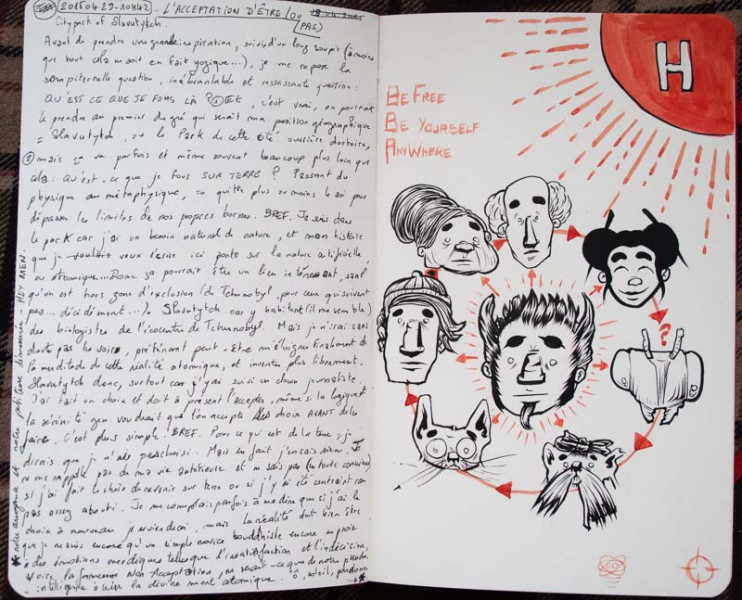 20150429-10H42 - L'ACCEPTATION D'ÊTRE (OU PAS)
City park of Slavutytch.
Avant de prendre une grande inspiration, suivi d'un long soupir (à moins
que tout cela ne soit en fait yogique...), je me repose la
sempiternelle question, inébranlable et ressassante question :
QU'EST CE QUE JE FOUS LÀ ? c'est vrai, on pourrait
le prendre au premier degré qui serait ma position géographique
= Slavutytch, ou le Park de cette cité ouvrière dortoire,
mais on va parfois et même souvent beaucoup plus loin que
cela : QU'EST-ce que je fous SUR TERRE ? Passant du
physique au métaphysique, on quitte plus ou moins le soi pour
dépasser les limites de nos propres bornes. BREF. Je suis dans
le park car j'ai un besoin naturel de nature, et mon histoire
que je veux écrire ici porte sur la nature artificielle,
ou Atomique... Donc ça pourrait être un lieu intéressant, sauf
qu'on est hors zone d'exclusion (de Tchernobyl, pour ceux qui suivent
pas... décidément...). Slavutytch car y habitent (il me semble)
des biologistes de l'écocentre de Tchernobyl. Mais je n'irai sans
doute pas les voir, préférant peut-être m'éloigner finalement de
la merditude de cette réalité atomique, et inventer plus librement.
Slavutytch donc, surtout car j'y ai suivi un chum journaliste.
J'ai fait un choix et doit à présent l'accepter, même si la logique et
la sérénité zen voudrait que l'on accepte les choix AVANT de les
faire. C'est plus simple. BREF. Pour ce qui est de la terre, je
dirais que je n'ai pas choisi. Mais en fait j'en sais rien. Je
ne me rappelle pas de ma vie antérieure et ne sais pas (en toute conscience)
si j'ai fait le choix de revenir sur terre ou si j'y ai été contraint car
pas assez abouti. Je me complais parfois à me dire que si j'ai le
choix à nouveau je reviendrai, mais la réalité doit bien être
que je ne suis encore qu'un simple novice bouddhiste encore en proie
des émotions merdiques telles que l'insatisfaction et l'indécision,
voire la fameuse Non Acceptation,
intelligence à suivre la divine mort atomique. Ô, soleil, pardonne
HEY MEN.
BE FREE
BE YOURSELF
ANYWHERE
H
?